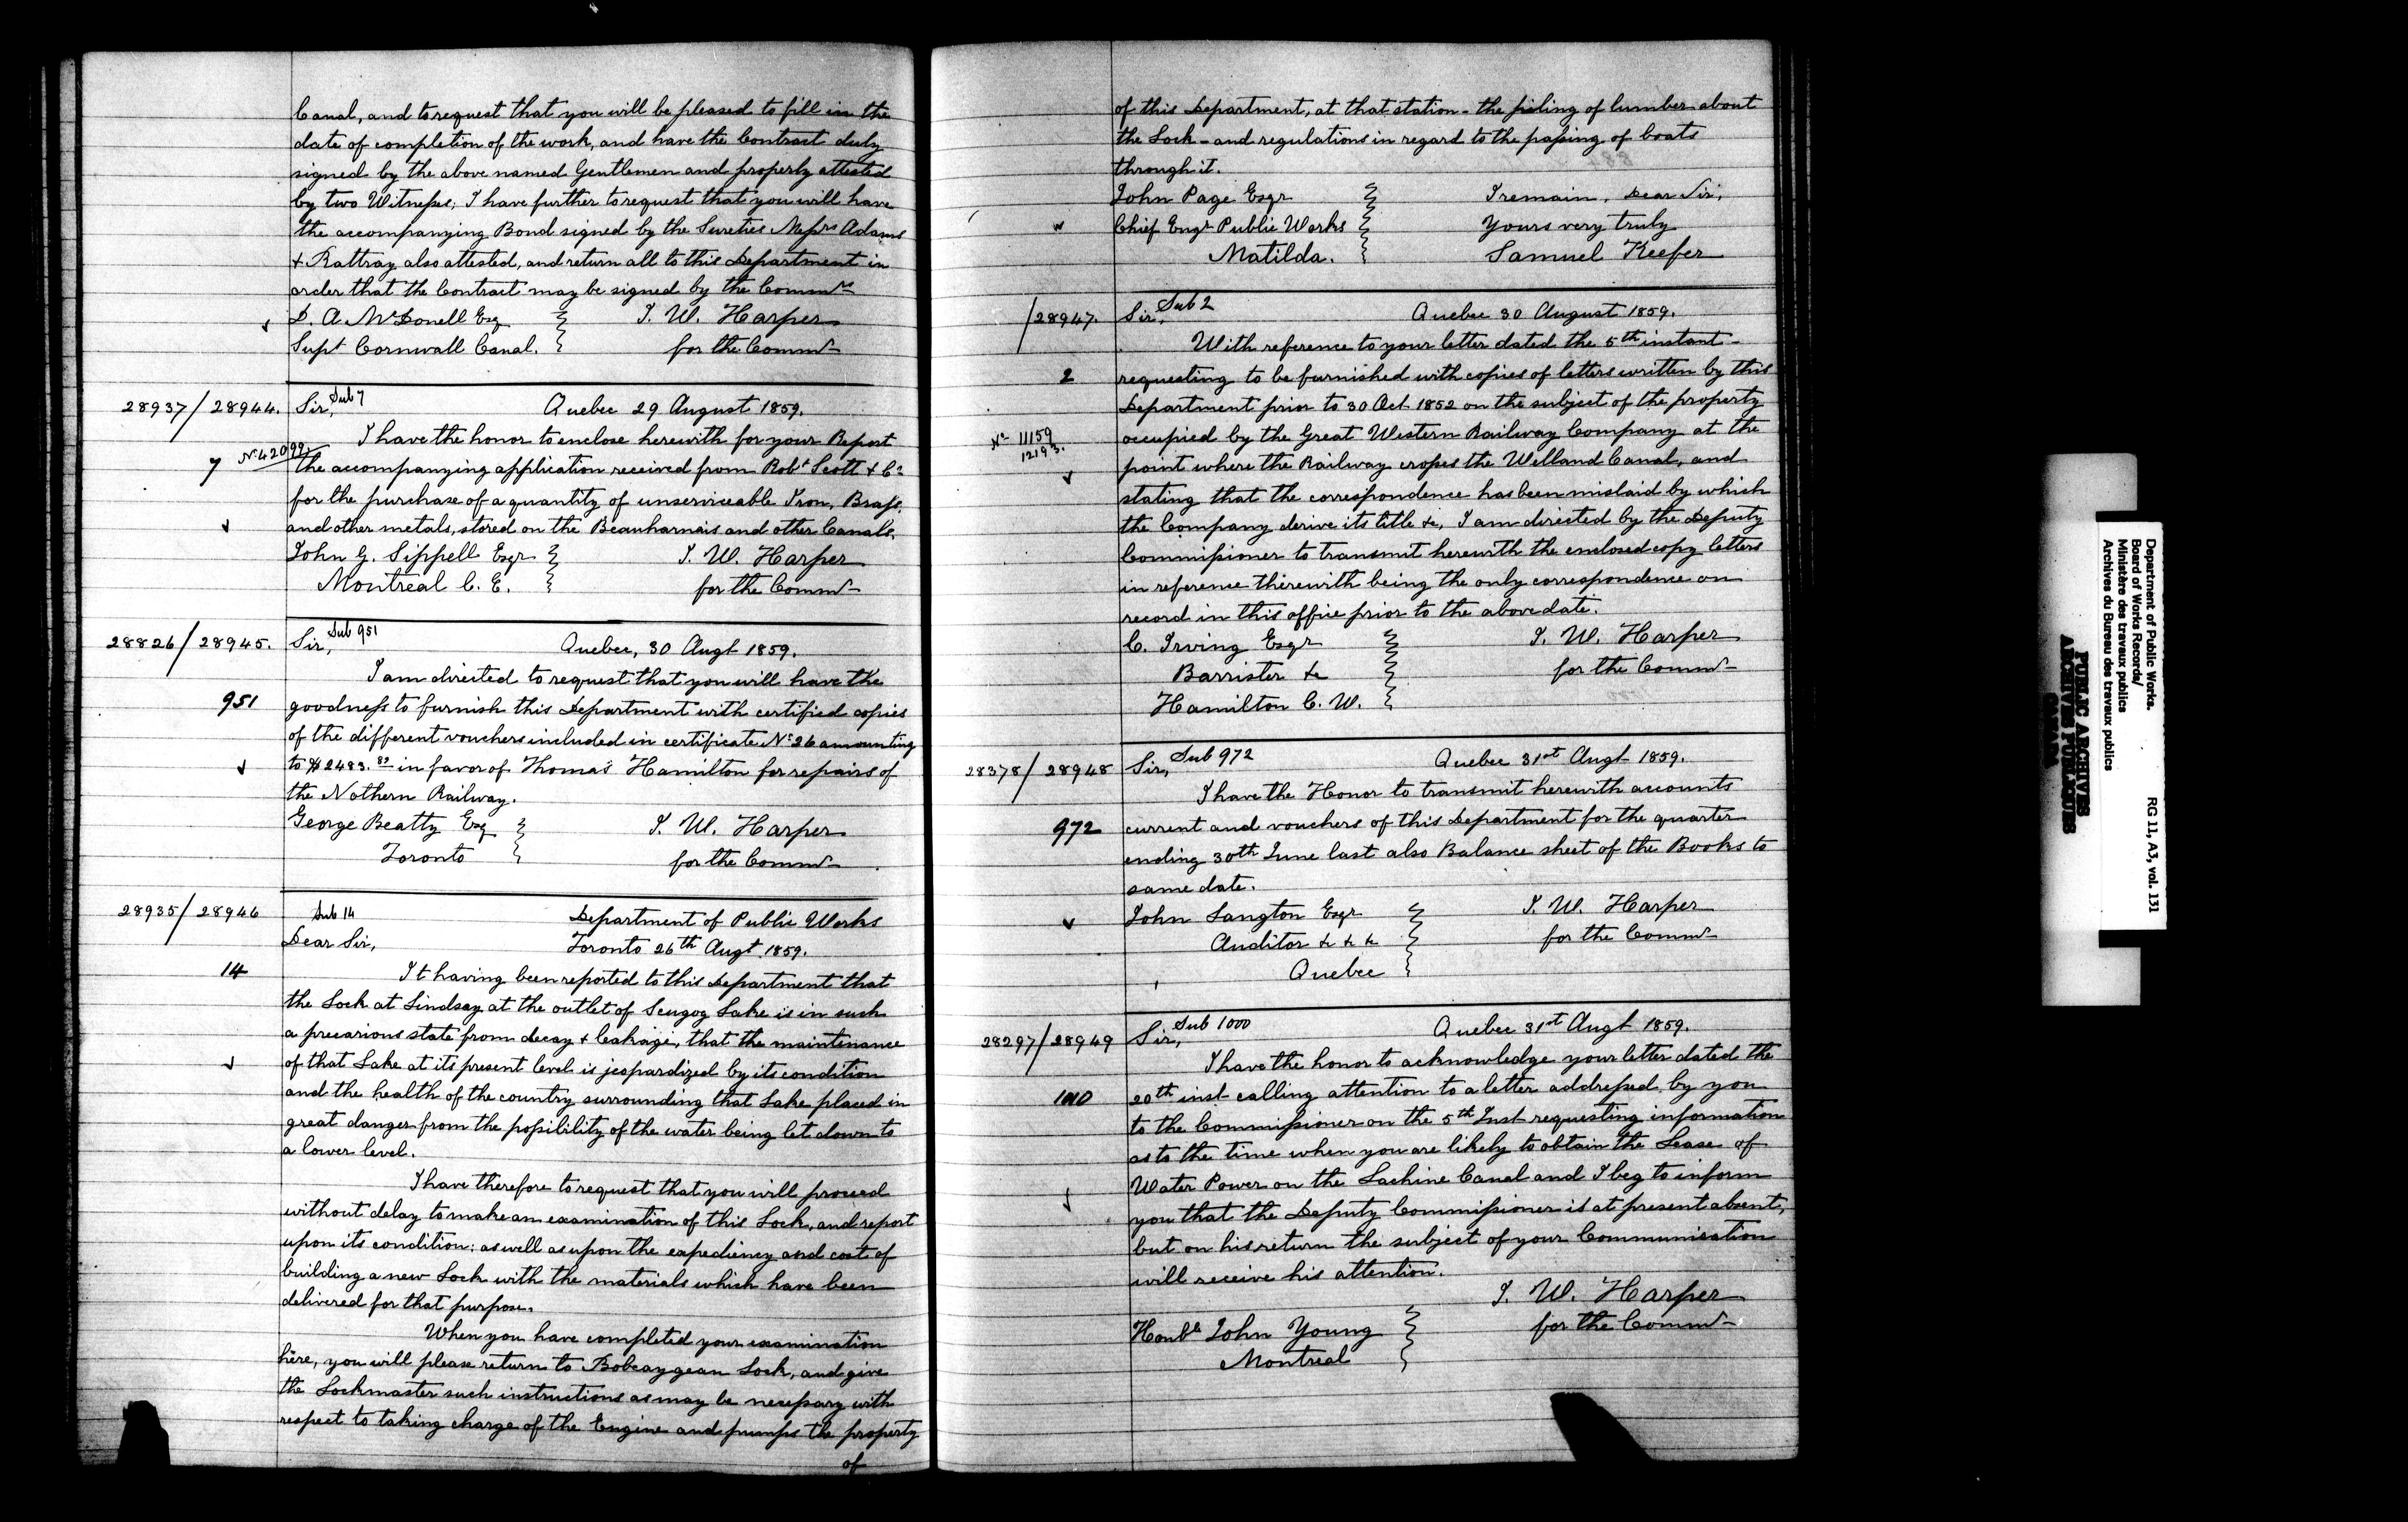 Canal, and to request that you will be pleased to fill in the
date of completion of the work, and have the Contract duly
signed by the above named Gentlemen and properly attested
by two Witnesses; I have further to request that you will have
the accompanying Bond signed by the Sureties Messrs Adams
& Rattray also attested, and return all to this Department in
order that the Contract may be signed by the Commrs
D. A. McDonell Esq T. W. Harper
Supt Cornwall Canal. for the Commr
28937/28944. Sir, Sub 7 Quebec 29 August 1859.
I have the honor to enclose herewith for your Report
7 No 42099 the accompanying application received from Robt Scott & Co
for the purchase of a quantity of unserviceable Iron, Brass,
and other metals, stored on the Beauharnais and other Canals.
John G. Sippell Esqr T. W. Harper
Montreal C. E. for the Commr
28826/28945. Sir, Sub 951 Quebec, 30 Augt 1859.
I am directed to request that you will have the
951 goodness to furnish this Department with certified copies
of the different vouchers included in certificate No 26 amounting
to $2483.82 in favor of Thomas Hamilton for repairs of
the Nothern Railway.
George Beatty Esq T. W. Harper
Toronto for the Commr
28935/28946 Sub 14 Department of Public Works
Dear Sir, Toronto 26th Augt 1859.
14 It having been reported to this Department that
the Lock at Lindsay at the outlet of Scugog Lake is in such
a precarious state from decay & leakage, that the maintenance
of that Lake at its present level is jeopardized by its condition
and the health of the country surrounding that Lake placed in
great danger from the possibility of the water being let down to
a lower level.
I have therefore to request that you will proceed
without delay to make an examination of this Lock, and report
upon its condition; as well as upon the expediency and cost of
building a new Lock with the materials which have been
delivered for that purpose.
When you have completed your examination
here, you will please return to Bobcaygean Lock, and give
the Lockmaster such instructions as may be necessary with
respect to taking charge of the Engine and pumps the property
of
of this Department, at that station - the piling of lumber about
the Lock - and regulations in regard to the passing of boats
through it.
John Page Esqr I remain, Dear Sir,
Chief Engr Public Works Yours very truly
Matilda. Samuel Keefer
/28947. Sir, Sub 2 Quebec 30 August 1859.
With reference to your letter dated the 5th instant -
2 requesting to be furnished with copies of letters written by this
Department prior to 30 Oct 1852 on the subject of the property
No 11159 occupied by the Great Western Railway Company at the
12193. point where the Railway crosses the Welland Canal, and
stating that the correspondence has been mislaid by which
the Company derive its title &c, I am directed by the Deputy
Commissioner to transmit herewith the enclosed copy letters
in reference therewith being the only correspondence on
record in this office prior to the above date.
C. Irving Esqr T. W. Harper
Barrister &c for the Commr
Hamilton C. W.
28378/28948 Sir, Sub 972 Quebec 31st Augt 1859.
I have the Honor to transmit herewith accounts
972 current and vouchers of this Department for the quarter
ending 30th June last also Balance sheet of the Books to
same date.
John Langton Esqr T. W. Harper
Auditor &c &c &c for the Commr
Quebec
28297/28949 Sir, Sub 1000 Quebec 31st Augt 1859.
I have the honor to acknowledge your letter dated the
1000 20th inst calling attention to a letter addressed by you
to the Commissioner on the 5th Inst requesting information
as to the time when you are likely to obtain the Lease of
Water Power on the Lachine Canal and I beg to inform
you that the Deputy Commissioner is at present absent,
but on his return the subject of your Communication
will receive his attention.
T. W. Harper
Honble John Young for the Commr
Montreal
Department of Public Works.
Board of Works Records/
Ministère des travaux publics
Archives du Bureau des travaux publics
RG 11, A3, vol. 131
PUBLIC ARCHIVES
ARCHIVES PUBLIQUES
CANADA